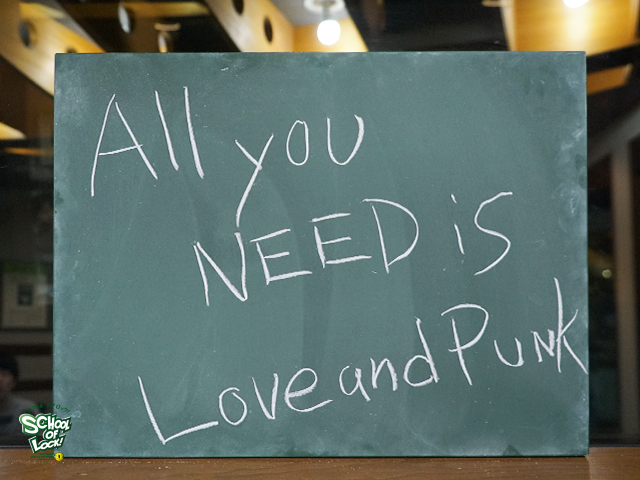 All you
NEED is
Love and Punk
SCHOOL
OF
LOCK!